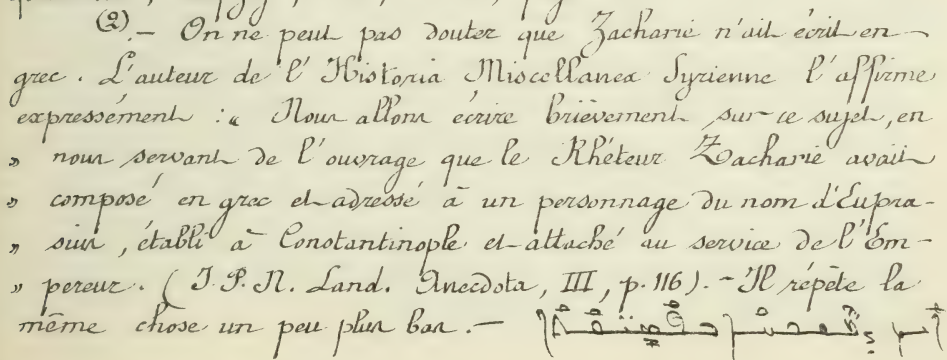 (2).— On ne peut pas douter que Zacharie n'ait écrit en
grec. L'auteur de l'Historia Miscellanea Syrienne l'affirme
expressément : « Nous allons écrire brièvement sur ce sujet, en
» nous servant de l'ouvrage que le Rhéteur Zacharie avait
» composé en grec et adressé à un personnage du nom d'Eupra-
» sius, établi à Constantinople et attaché au service de l'Em-
» pereur. (J.P.N. Land. Anecdota, III, p. 116). — Il répète la
même chose un peu plus bas. —